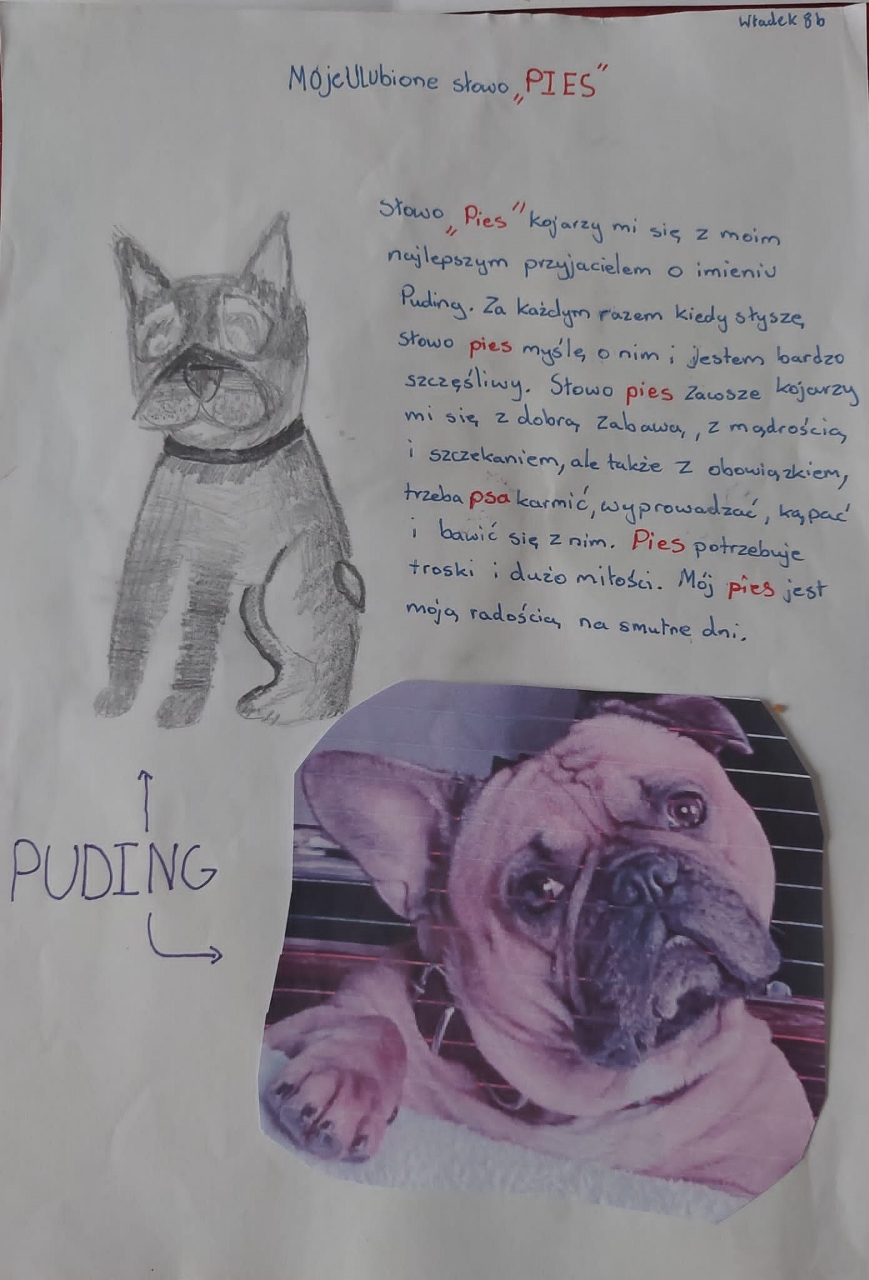 Władek 8b
Moje Ulubione słowo „PIES"
Słowo „Pies" kojarzy mi się z moim
najlepszym przyjacielem o imieniu
Puding. Za każdym razem kiedy słyszę
słowo pies myślę o nim i jestem bardzo
szczęśliwy. Słowo pies zawsze kojarzy
mi się z dobrą zabawą, z mądrością
i szczekaniem, ale także z obowiązkiem,
trzeba psa karmić, wyprowadzać, kąpać
i bawić się z nim. Pies potrzebuje
troski i dużo miłości. Mój pies jest
moją radością na smutne dni.
PUDING